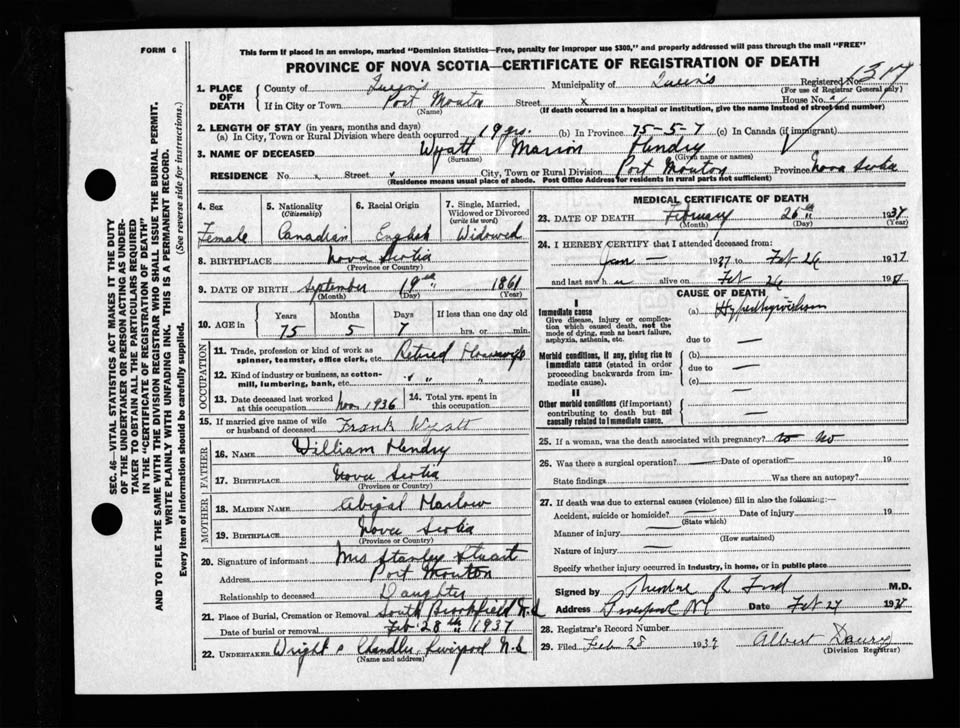 FORM 6
This form if placed in an envelope, marked "Dominion Statistics—Free, penalty for improper use $300," and properly addressed will pass through the mail "FREE"
PROVINCE OF NOVA SCOTIA—CERTIFICATE OF REGISTRATION OF DEATH
SEC. 46—VITAL STATISTICS ACT MAKES IT THE DUTY
OF THE UNDERTAKER OR PERSON ACTING AS UNDER-
TAKER TO OBTAIN ALL THE PARTICULARS REQUIRED
IN THE "CERTIFICATE OF REGISTRATION OF DEATH"
AND TO FILE THE SAME WITH THE DIVISION REGISTRAR WHO SHALL ISSUE THE BURIAL PERMIT.
WRITE PLAINLY WITH UNFADING INK. THIS IS A PERMANENT RECORD.
Every item of information should be carefully supplied. (See reverse side for instructions.)
1. PLACE OF DEATH County of Queen's Municipality of Queen's Registered No.
(For use of Registrar General only)
If in City or Town Port Mouton Street x House No.
(Name) (If death occurred in a hospital or institution, give the name instead of street and number)
2. LENGTH OF STAY (in years, months and days)
(a) In City, Town or Rural Division where death occurred 19 yrs. (b) In Province 75-5-7 (c) In Canada (if immigrant)
3. NAME OF DECEASED Wyatt Marion Hendry
(Surname) (Given name or names)
RESIDENCE No. x Street City, Town or Rural Division Port Mouton Province Nova Scotia
(Residence means usual place of abode. Post Office Address for residents in rural parts not sufficient)
4. Sex 5. Nationality (Citizenship) 6. Racial Origin 7. Single, Married, Widowed or Divorced (write the word)
Female Canadian English Widowed
8. BIRTHPLACE Nova Scotia
(Province or Country)
9. DATE OF BIRTH September 19th 1861
(Month) (Day) (Year)
10. AGE in Years Months Days If less than one day old
75 5 7 hrs. or min.
OCCUPATION
11. Trade, profession or kind of work as spinner, teamster, office clerk, etc. Retired Housewife
12. Kind of industry or business, as cotton-mill, lumbering, bank, etc. " "
13. Date deceased last worked at this occupation Nov 1936 14. Total yrs. spent in this occupation
15. If married give name of wife or husband of deceased Frank Wyatt
FATHER
16. NAME William Hendry
17. BIRTHPLACE Nova Scotia
(Province or Country)
MOTHER
18. MAIDEN NAME Abigal Harlow
19. BIRTHPLACE Nova Scotia
(Province or Country)
20. Signature of informant Mrs Stanley Stuart
Address Port Mouton
Relationship to deceased Daughter
21. Place of Burial, Cremation or Removal South Brookfield N.S
Date of burial or removal Feb. 28th 1937
22. UNDERTAKER Wright & Chandler Liverpool N.S
(Name and address)
MEDICAL CERTIFICATE OF DEATH
23. DATE OF DEATH February 26th 1937
(Month) (Day) (Year)
24. I HEREBY CERTIFY that I attended deceased from:
Jan — 1937 to Feb 26 1937
and last saw h er alive on Feb 26 193
CAUSE OF DEATH
I
Immediate cause
Give disease, injury or complication which caused death, not the mode of dying, such as heart failure, asphyxia, asthenia, etc.
(a)
due to —
Morbid conditions, if any, giving rise to immediate cause (stated in order proceeding backwards from immediate cause).
(b)
due to —
(c)
II
Other morbid conditions (if important) contributing to death but not causally related to immediate cause.
25. If a woman, was the death associated with pregnancy? No
26. Was there a surgical operation? — Date of operation 19
State findings Was there an autopsy?
27. If death was due to external causes (violence) fill in also the following:—
Accident, suicide or homicide? — Date of injury 19
(State which)
Manner of injury —
(How sustained)
Nature of injury —
Specify whether injury occurred in industry, in home, or in public place
Signed by R Ford M.D.
Address Liverpool NS Date Feb 27 193
28. Registrar's Record Number
29. Filed Feb 28 1937 Albert
(Division Registrar)